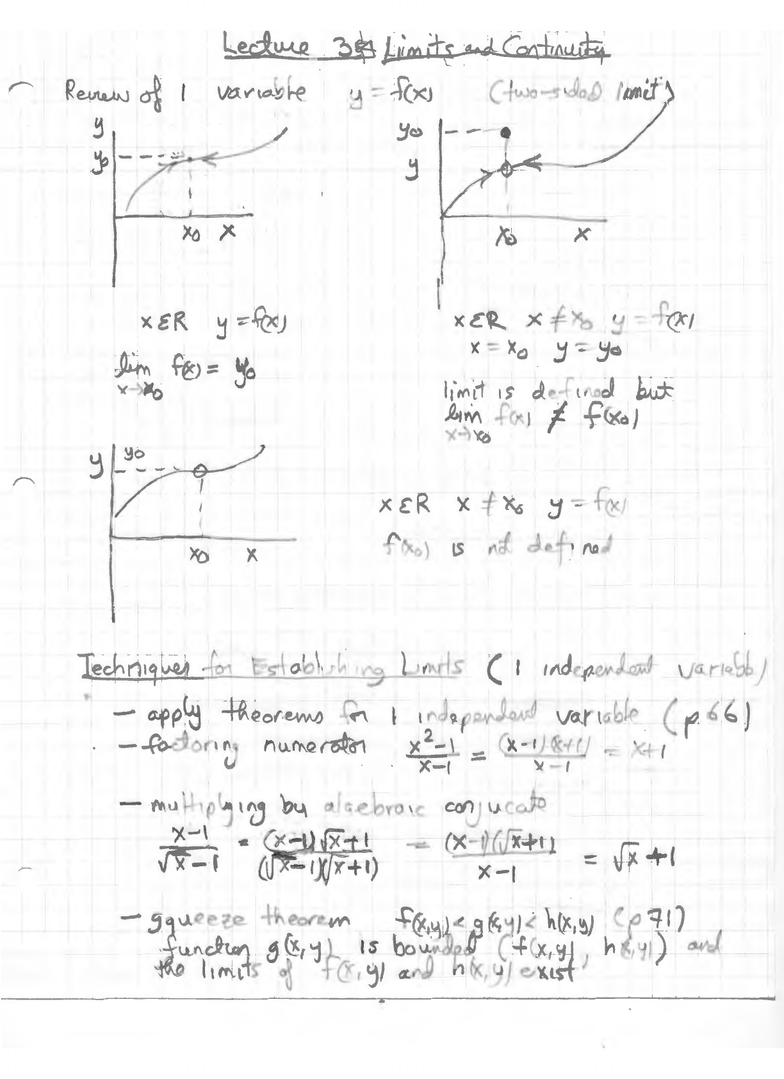 Lecture 3 Limits and Continuity
Review of 1 variable y = f(x) (two-sided limit)
y
y0
x0 x
y0
y
x0 x
x ε R y = f(x)
lim f(x) = y0
x→x0
x ε R x ≠ x0 y = f(x)
x = x0 y = y0
limit is defined but
lim f(x) ≠ f(x0)
x→x0
y y0
x0 x
x ε R x ≠ x0 y = f(x)
f(x0) is not defined
Techniques for Establishing Limits (1 independent variable)
— apply theorems for 1 independent variable (p.66)
— factoring numerator (x²-1)/(x-1) = (x-1)(x+1)/(x-1) = x+1
— multiplying by algebraic conjucate
(x-1)/(√x-1) = (x-1)√x+1/(√x-1)(√x+1) = (x-1)(√x+1)/(x-1) = √x+1
— squeeze theorem f(x,y) < g(x,y) < h(x,y) (p71)
function g(x,y) is bounded (f(x,y), h(x,y)) and
the limits of f(x,y) and h(x,y) exist